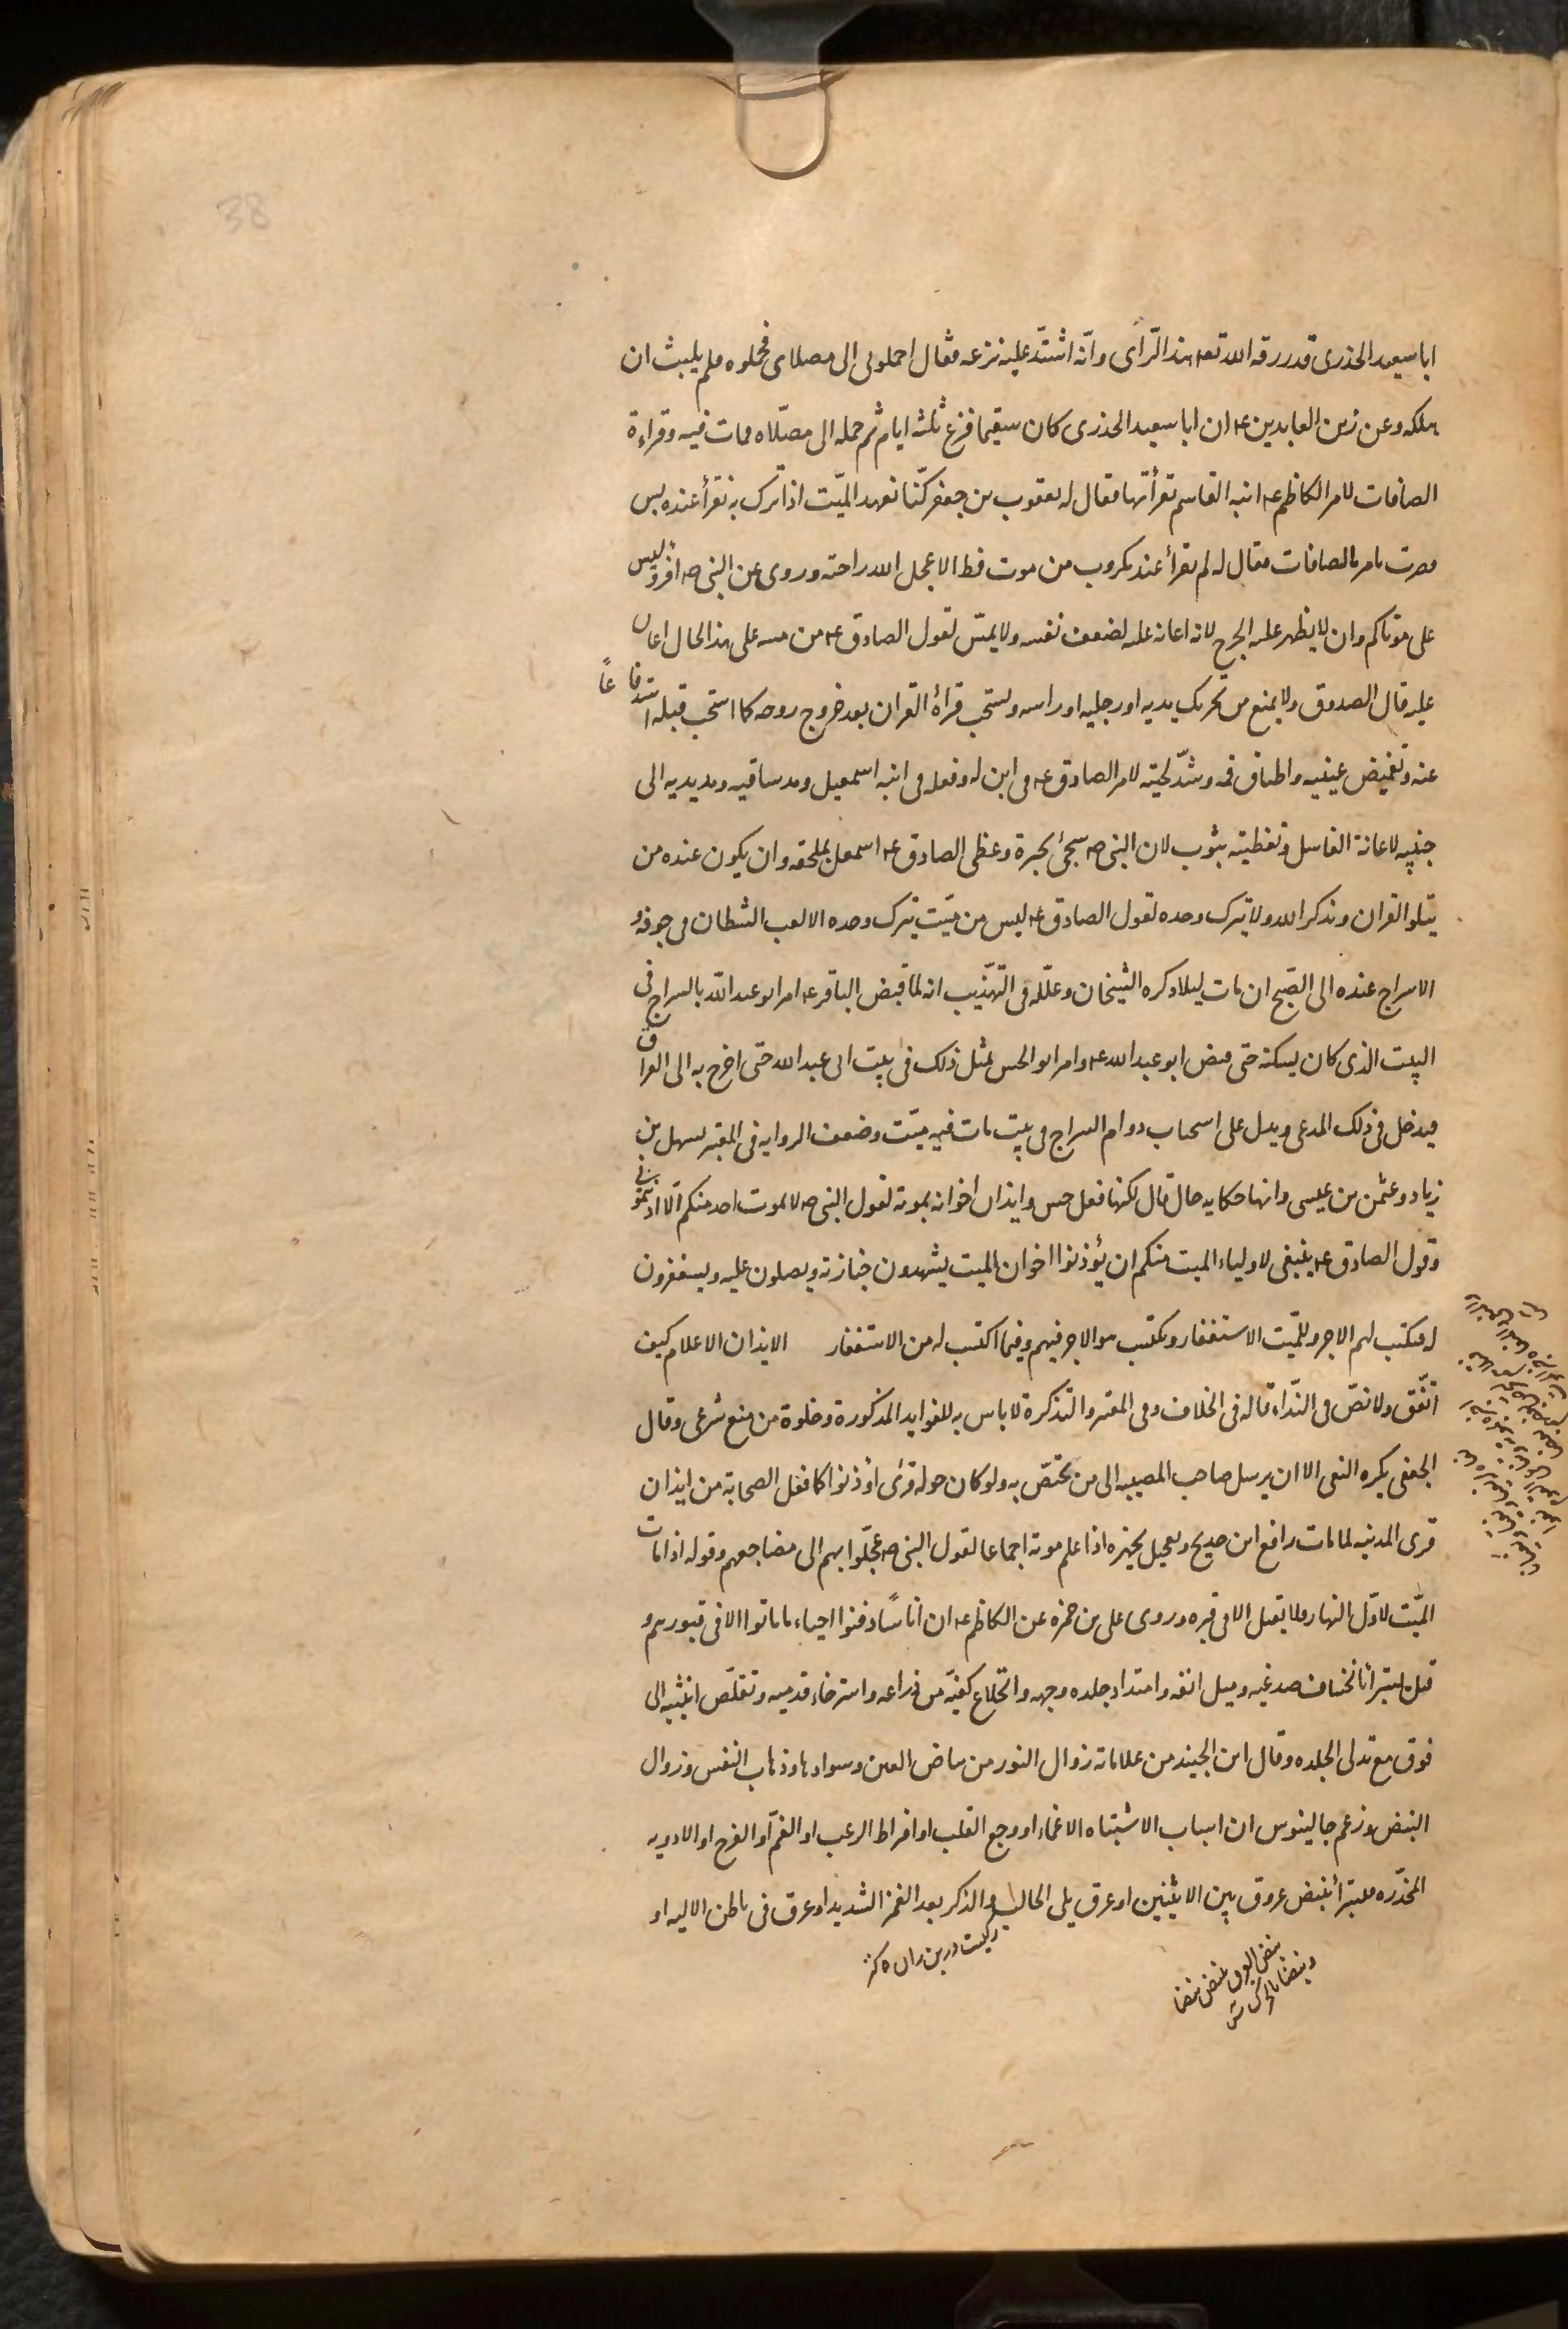 38
ابا سعيد الخدرى قد رزقه الله تعه هذا الرّأى وانّه اشتدّ عليه نزعه فقال احملونى الى مصلاى فحملوه فلم يلبث ان
هلك وعن زين العابدين ع ان ابا سعيد الخدرى كان سقيما فزع ثلثة ايام ثم حمله الى مصّلاه فمات فيه وقراءة
الصافات لامر الكاظم ع ابنه القاسم بقرأتها فقال له يعقوب بن جعفر كنّا نعهد الميّت اذا نزل به نقرأ عنده يس
فصرت تامر بالصافات فقال له لم تقرأ عند مكروب من موت قط الا عجل الله راحته وروى عن النبى ص اقرؤ يس
على موتاكم وان لا يظهر عليه الجزع لانه اعانه عليه لضعف نفسه ولا يمسّ لقول الصادق ع من مسه على هذا الحال اعان
عليه قال الصدوق ولا يمنع من تحريك يديه او رجليه او راسه ويستحب قرأة القران بعد خروج روحه كما استحب قبله استدفاعاً
عنه وتغميض عينيه واطباق فمه وشدّ لحيته لامر الصادق ع فى ابن له وفعله فى ابنه اسمعيل ومد ساقيه ومد يديه الى
جنبيه لاعانة الغاسل وتغطيته بثوب لان النبى ص سجى بحبرة وغطى الصادق ع اسمعيل بملحفه وان يكون عنده من
يتلو القران ويذكر الله ولا يترك وحده لقول الصادق ع ليس من ميّت يترك وحده الا لعب الشيطان فى جوفه و
الاسراج عنده الى الصّبح ان مات ليلا ذكره الشيخان وعلّله فى التّهذيب انه لما قبض الباقر ع امر ابو عبد الله بالسراج فى
البيت الذى كان يسكنه حتى قبض ابو عبد الله ع وامر ابو الحسن بمثل ذلك فى بيت ابى عبد الله حتى اخرج به الى العراق
فيدخل فى ذلك المدعى ويدل على استحباب دوام السراج فى بيت مات فيه ميّت وضعف الروايه فى المعتبر بسهل بن
زياد وعثمن بن عيسى وانها حكايه حال قال لكنها فعل حسن وايذان اخوانه بموته لقول النبى ص لا يموت احد منكم الّا اذنتمونى
وقول الصادق ع ينبغى لاولياء الميت منكم ان يؤذنوا اخوان الميت يشهدون جنازته ويصلون عليه ويستغفرون
له فيكتب لهم الاجر وللميّت الاستغفار ويكتسب هو الاجر فيهم وفيما اكتسب له من الاستغفار الايذان الاعلام كيف
اتّفق ولا نصّ فى النّداء قاله فى الخلاف وفى المعتبر والتذكرة لا باس به للفوايد المذكورة وخلوة من منع شرعى وقال
الجعفى يكره النعى الا ان يرسل صاحب المصيبه الى من يختصّ به ولو كان حوله قرى اوذنوا كما فعل الصحابة من ايذان
قرى المدينه لما مات رافع ابن خديج وتعجيل تجهيزه اذا علم موته اجماعا لقول النبى ص عجّلوا بهم الى مضاجعهم وقوله اذا مات
الميّت لاوّل النهار فلا يقيل الا فى قبره وروى على بن حمزه عن الكاظم ع ان اناسًا دفنوا احياء ما ماتوا الا فى قبورهم و
قيل يستبرأ بانخساف صدغيه وميل انفه وامتداد جلده وجهه وانخلاع كفيّه من ذراعه واسترخاء قدميه وتقلّص انثييه الى
فوق مع تدلى الجلده وقال ابن الجنيد من علاماته زوال النور من بياض العين وسوادها وذهاب النفس وزوال
النبض وزعم جالينوس ان اسباب الاشتباه الاغماء او وجع القلب او افراط الرعب او الغمّ او الفرح او الادويه
المخدّره فيستبرأ بنبض عروق بين الانثيين او عرق يلى الحالب والذكر بعد الغمز الشديد او عرق فى باطن الاليه او
ركيست در بن ران كنز
نبض العرق ينبض نبضا
ونبضانا تحرك